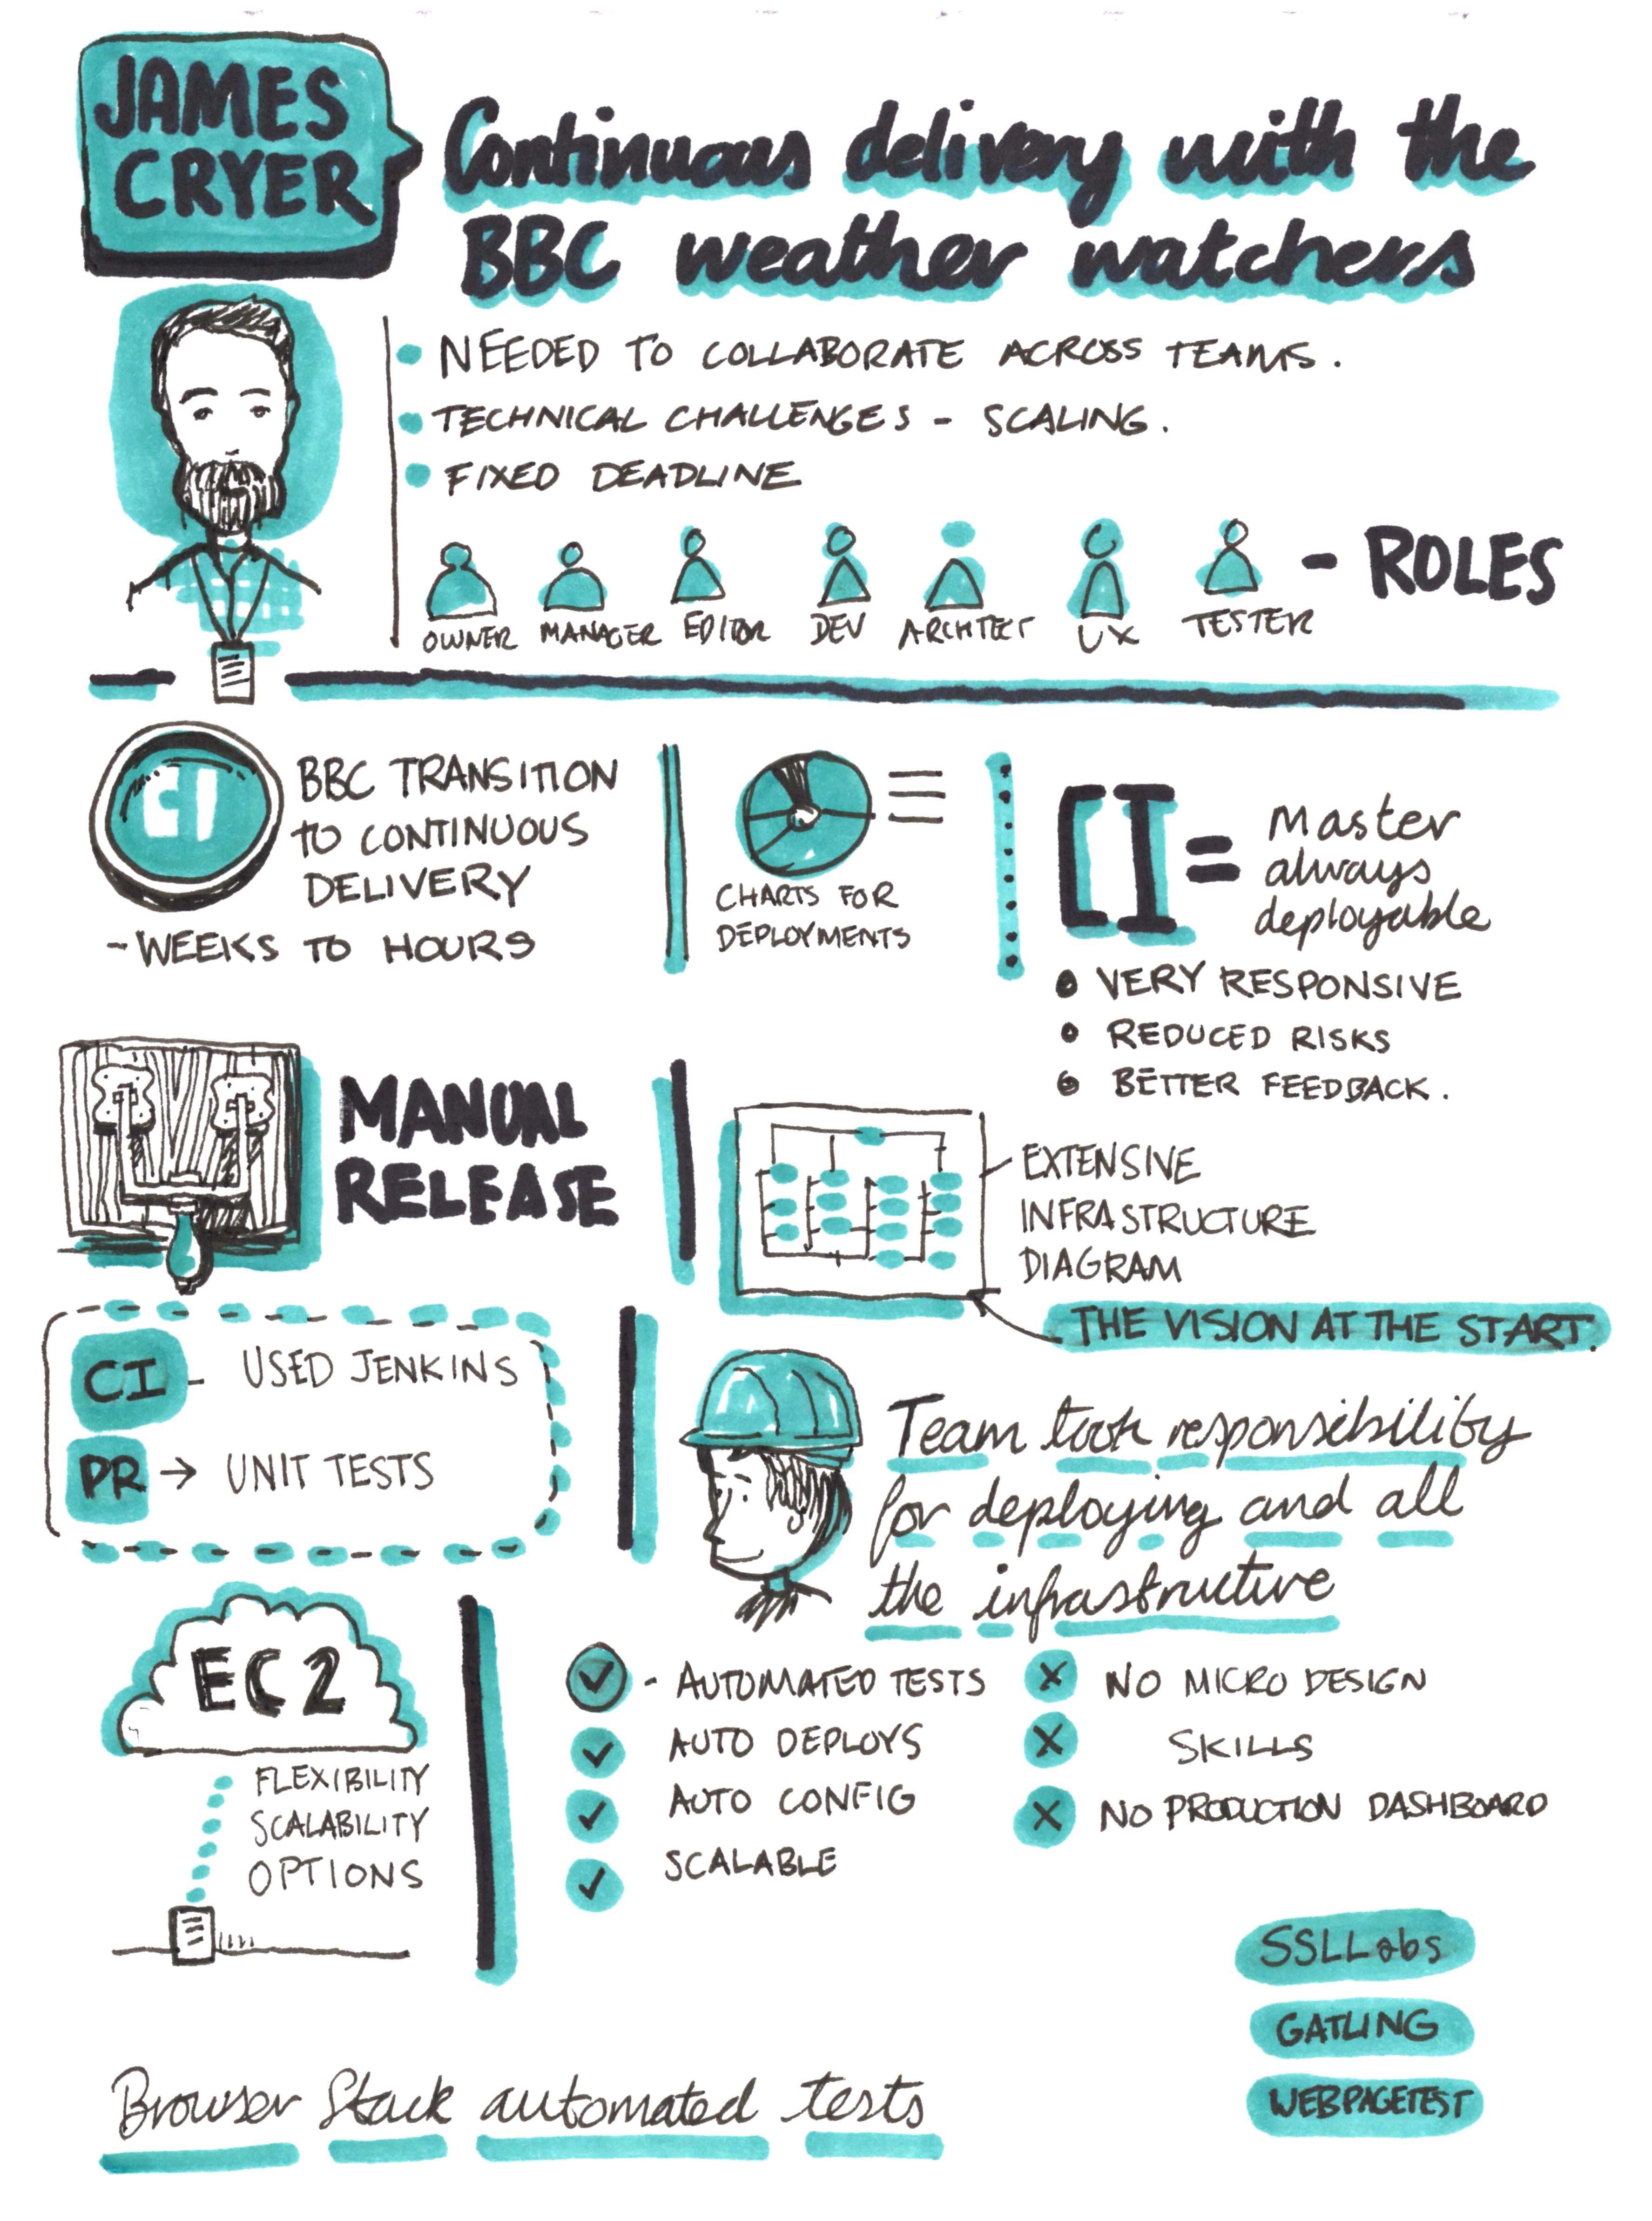 JAMES
CRYER
Continuous delivery with the
BBC weather watchers
NEEDED TO COLLABORATE ACROSS TEAMS.
TECHNICAL CHALLENGES - SCALING.
FIXED DEADLINE
OWNER MANAGER EDITOR DEV ARCHITECT UX TESTER - ROLES
CI
BBC TRANSITION
TO CONTINUOUS
DELIVERY
- WEEKS TO HOURS
CHARTS FOR
DEPLOYMENTS
CI = Master
always
deployable
VERY RESPONSIVE
REDUCED RISKS
BETTER FEEDBACK.
MANUAL
RELEASE
EXTENSIVE
INFRASTRUCTURE
DIAGRAM
THE VISION AT THE START.
CI - USED JENKINS
PR → UNIT TESTS
Team took responsibility
for deploying and all
the infrastructure
EC2
FLEXIBILITY
SCALABILITY
OPTIONS
✓ - AUTOMATED TESTS
✓ AUTO DEPLOYS
✓ AUTO CONFIG
✓ SCALABLE
X NO MICRO DESIGN
X SKILLS
X NO PRODUCTION DASHBOARD
SSLLabs
GATLING
WEBPAGETEST
Browser Stack automated tests